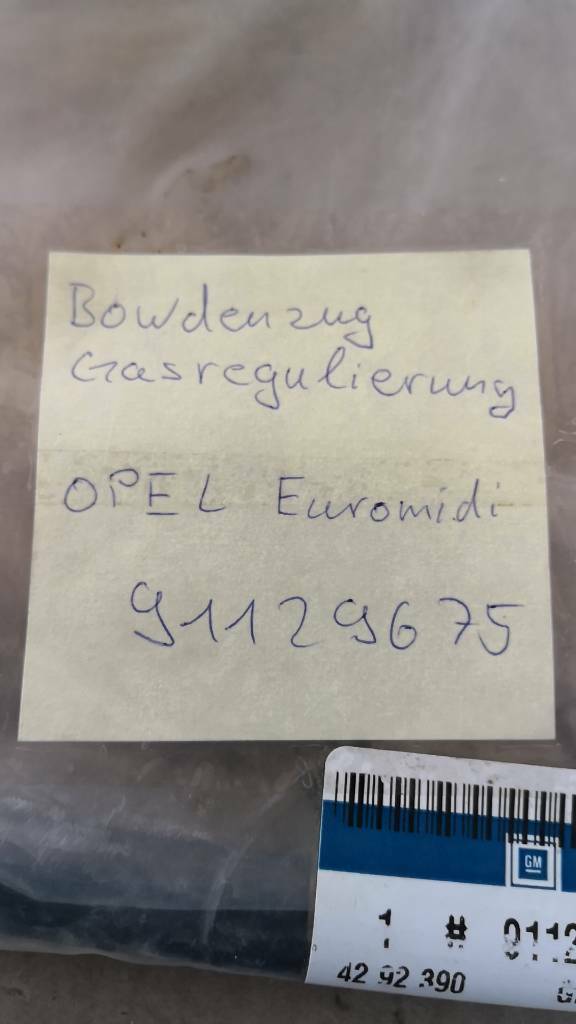 Bowdenzug
Gasregulierung
OPEL Euromidi
91129675
GM
1 # 0112
42 92 390